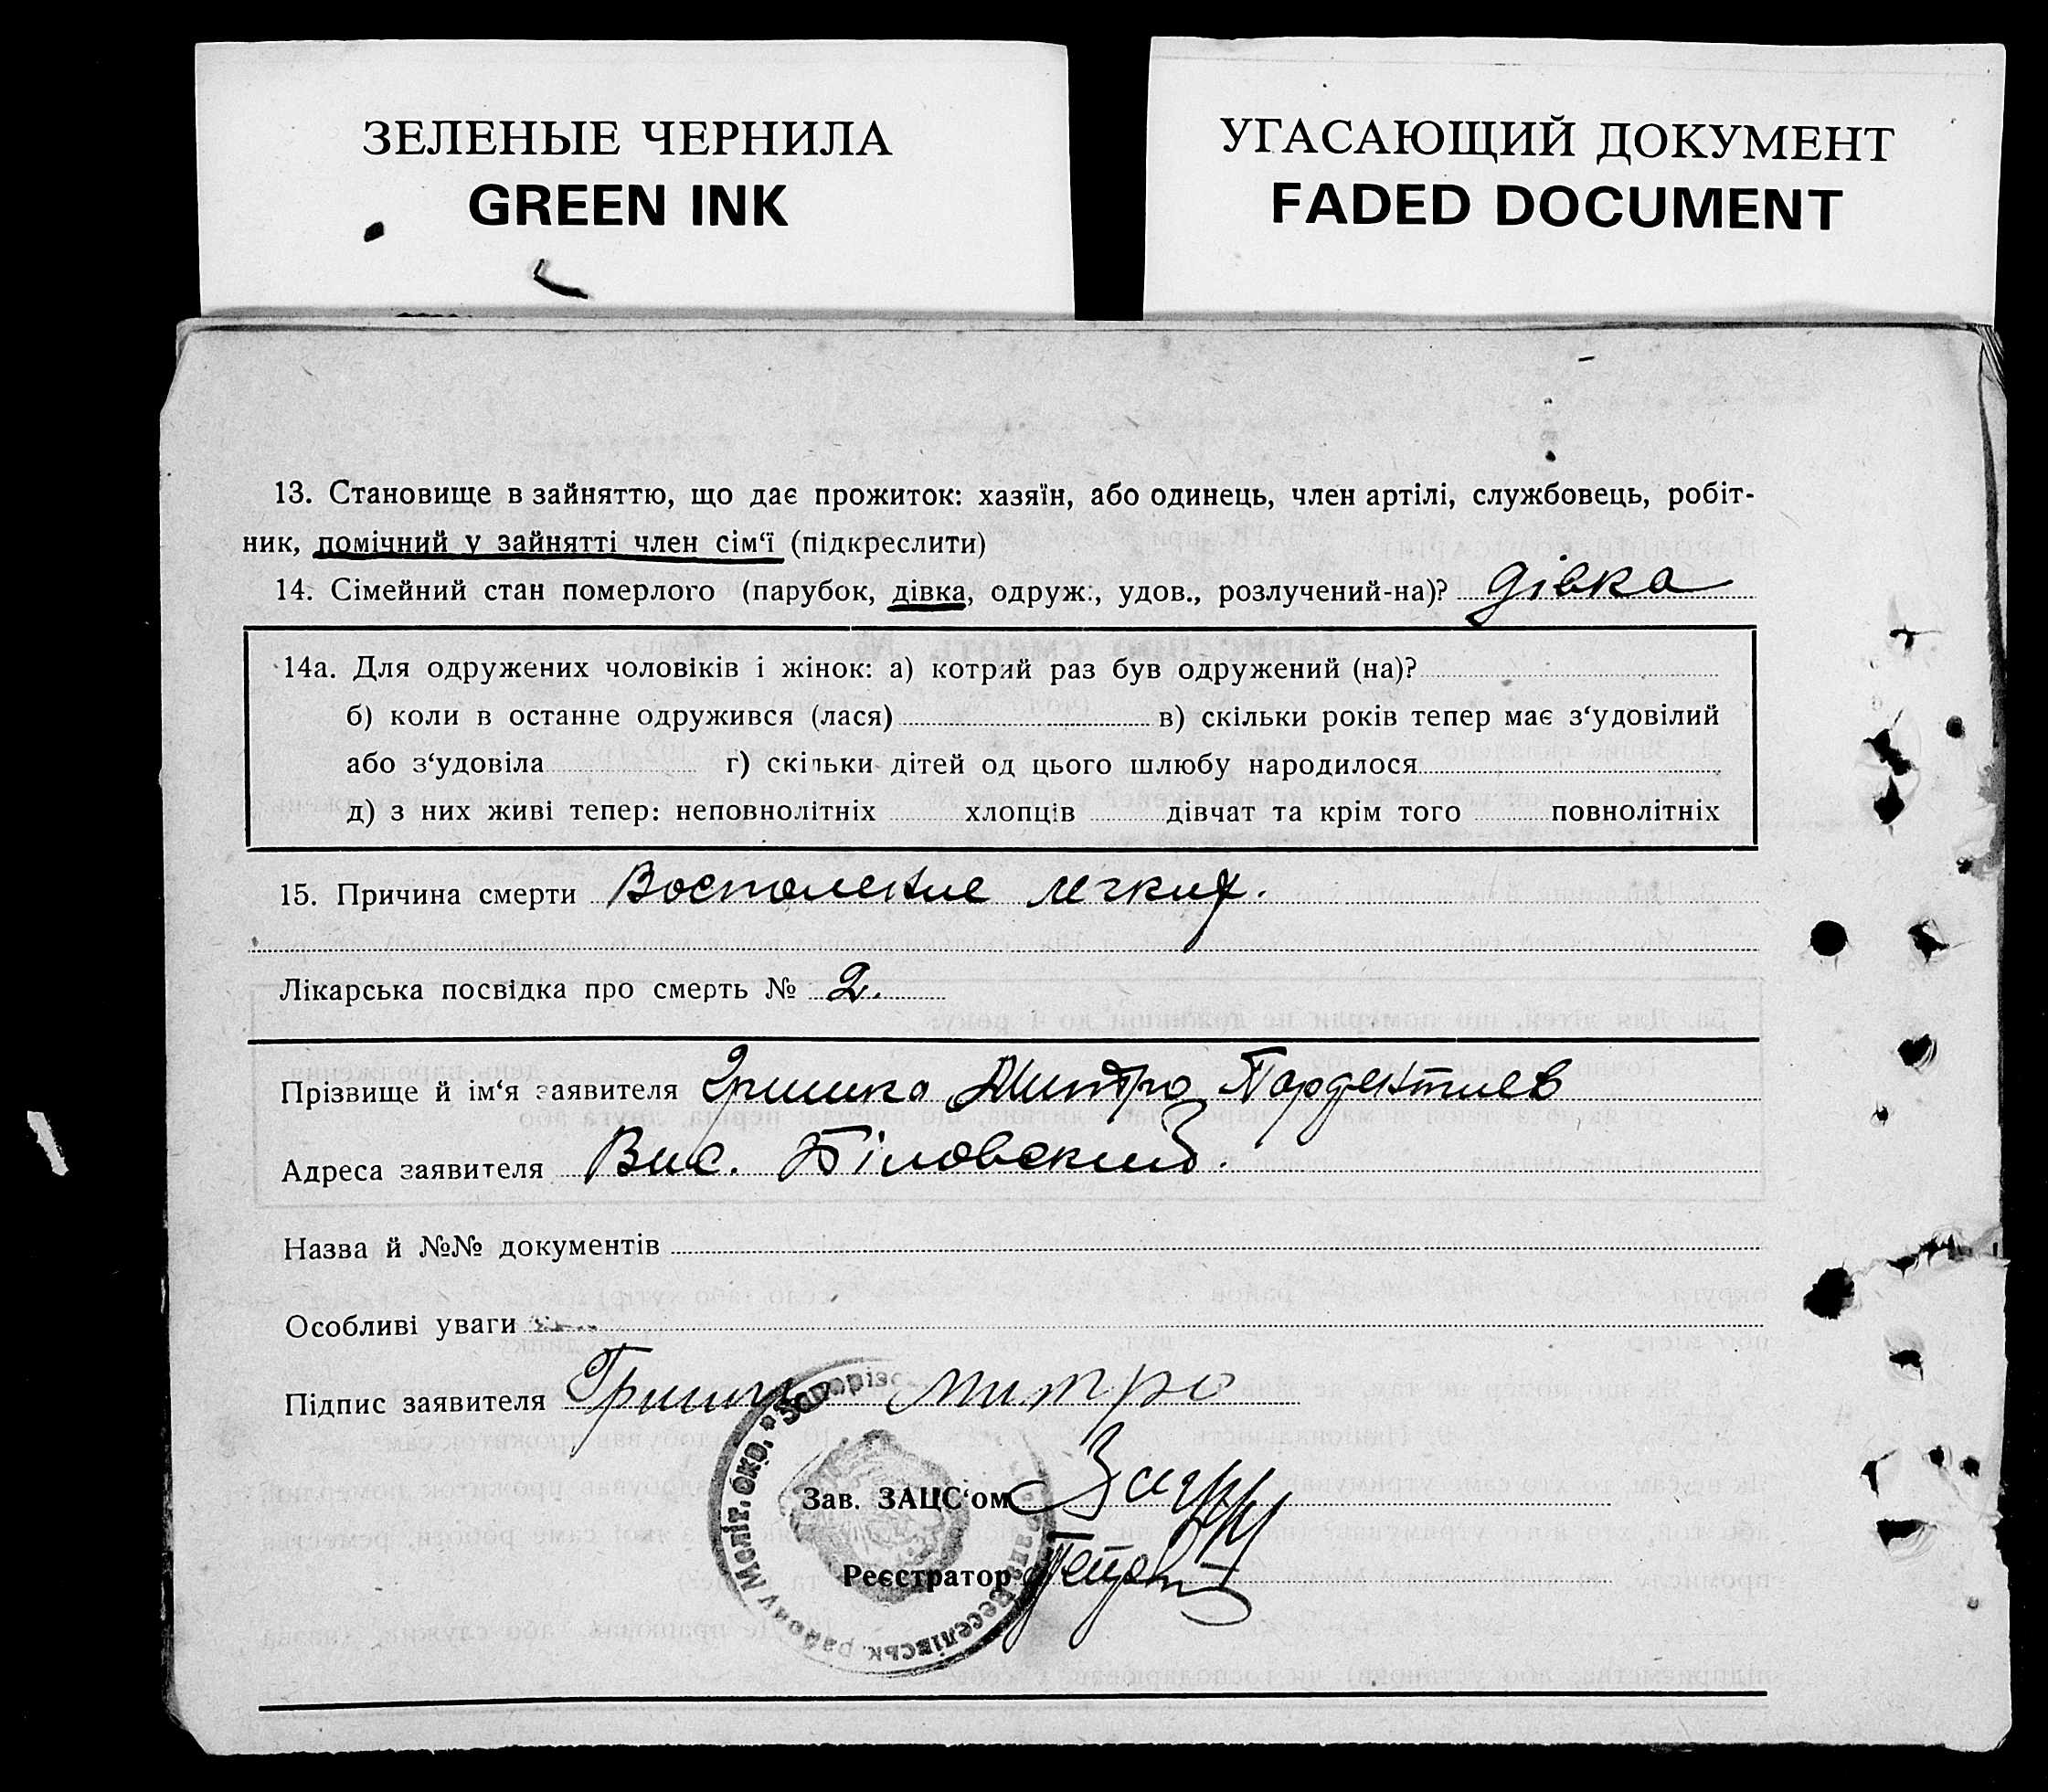 ЗЕЛЕНЫЕ ЧЕРНИЛА
GREEN INK
УГАСАЮЩИЙ ДОКУМЕНТ
FADED DOCUMENT
13. Становище в зайняттю, що дає прожиток: хазяїн, або одинець, член артілі, службовець, робіт-
ник, помічний у зайнятті член сім‘ї (підкреслити)
14. Сімейний стан померлого (парубок, дівка, одруж., удов., розлучений-на)? дівка
14а. Для одружених чоловіків і жінок: а) котрий раз був одружений (на)?
б) коли в останне одружився (лася) в) скільки років тепер має з‘удовілий
або з‘удовіла г) скільки дітей од цього шлюбу народилося
д) з них живі тепер: неповнолітніх хлопців дівчат та крім того повнолітніх
15. Причина смерти Воспаление легких.
Лікарська посвідка про смерть № 2.
Прізвище й ім‘я заявителя Гришко Дмитро
Адреса заявителя Вис. Біловский.
Назва й №№ документів
Особливі уваги
Підпис заявителя Гришко Митро
Зав. ЗАЦС‘ом
Реєстратор
Веселівськ. району Меліт. окр.